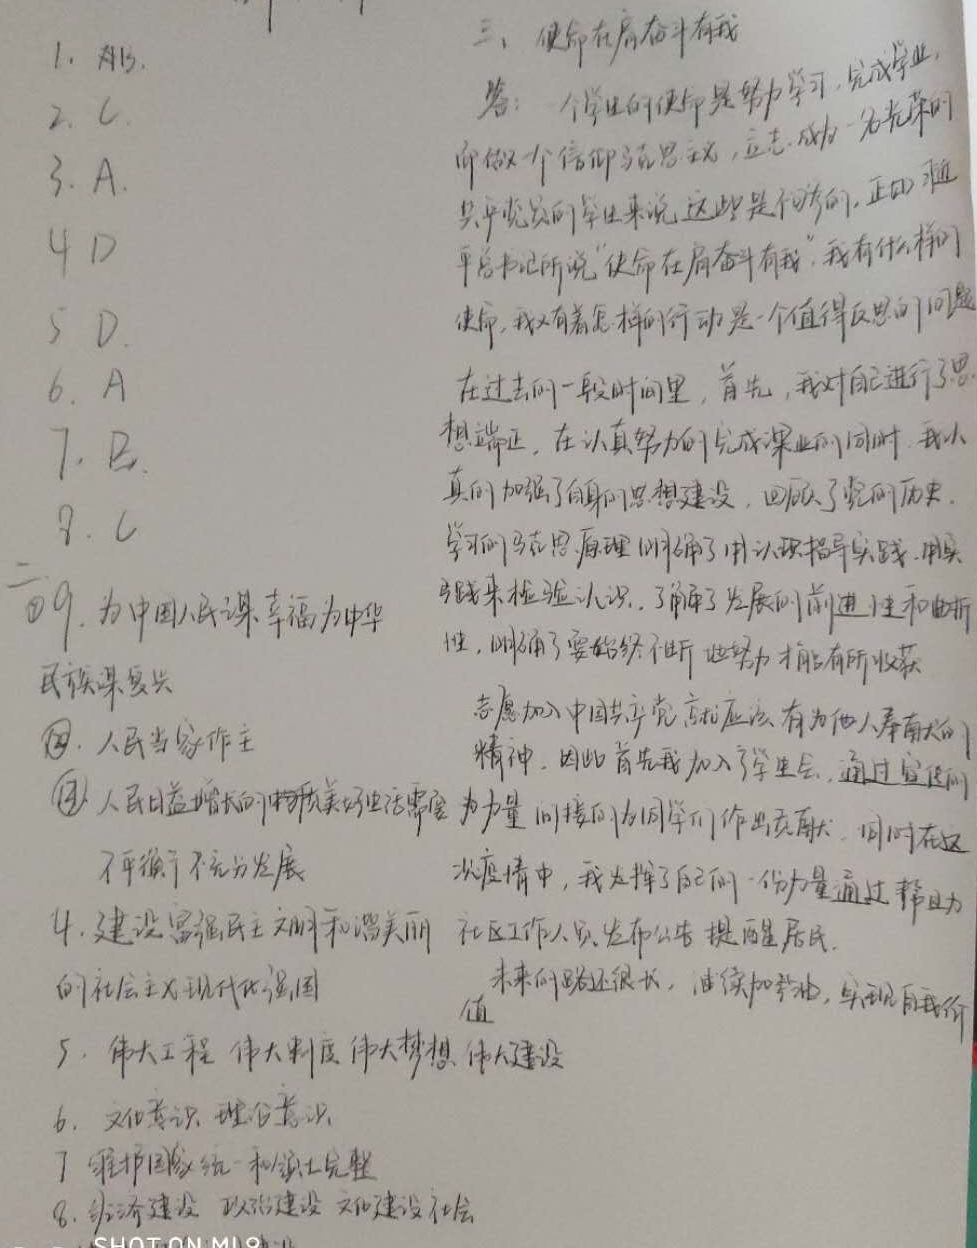 1. AB.
2. C.
3. A.
4 D
5 D.
6. A
7. B.
8. C
二
① 9. 为中国人民谋幸福为中华
民族谋复兴
②. 人民当家作主
③ 人民日益增长的美好生活需要
不平衡不充分发展
4. 建设富强民主文明和谐美丽
的社会主义现代化强国
5. 伟大工程 伟大制度 伟大梦想 伟大建设
6. 文化意识 理论意识
7 维护国家统一和领土完整
8. 经济建设 政治建设 文化建设 社会
三、使命在肩奋斗有我
答: 一个学生的使命是努力学习,完成学业,
而做一个信仰马克思主义,立志成为一名光荣的
共产党员的学生来说 这些是不够的,正如习近
平总书记所说"使命在肩奋斗有我",我有什么样的
使命,我又有着怎样的行动是一个值得反思的问题
在过去的一段时间里,首先,我对自己进行了思
想端正,在认真努力的完成课业的同时,我认
真的加强了自身的思想建设,回顾了党的历史,
学习的马克思原理 明确了用认识指导实践,用实
践来检验认识,了解了发展的前进性和曲折
性,明确了要始终不断地努力才能有所收获
志愿加入中国共产党 就应该有为他人奉献的
精神,因此首先我加入了学生会,通过宣传的
力量 间接的为同学们作出贡献,同时在这
次疫情中,我发挥了自己的一份力量通过帮助
社区工作人员 发布公告 提醒居民.
未来的路还很长,继续加油,实现自我价
值
SHOT ON MI 8